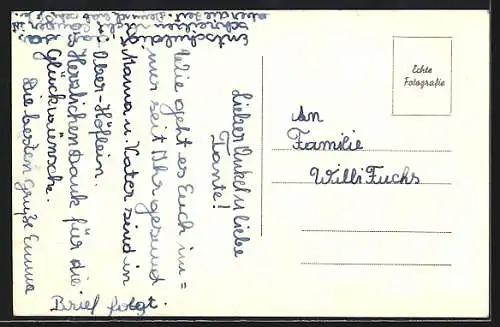 Lieber Onkel u. liebe
Tante!
Wie geht es Euch im=
mer seid Ihr gesund
Mama u. Vater sind in
Ober-Höflein.
Herzlichen Dank für die
Glückwünsche.
Die besten Grüße Emma
Brief folgt.
Entschuldig
schreiben
aber die Zeit
Echte
Fotografie
An
Familie
Willi Fuchs